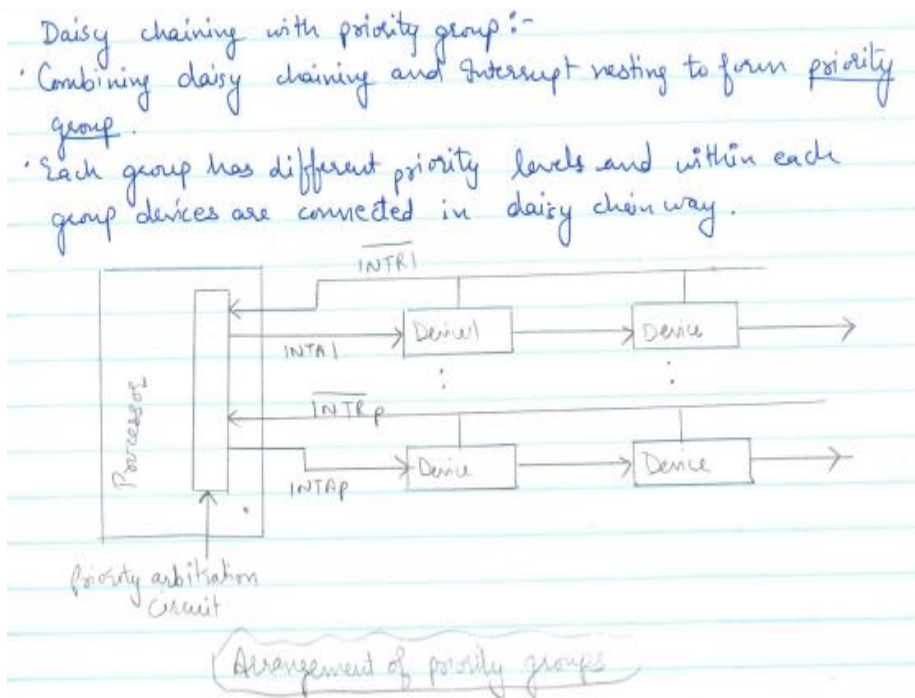 Daisy chaining with priority group :-
· Combining daisy chaining and Interrupt nesting to form priority
group.
· Each group has different priority levels and within each
group devices are connected in daisy chain way.
INTR1
Device1
Device
INTA1
Processor
INTRp
Device
Device
INTAp
Priority arbitration
Circuit
Arrangement of priority groups